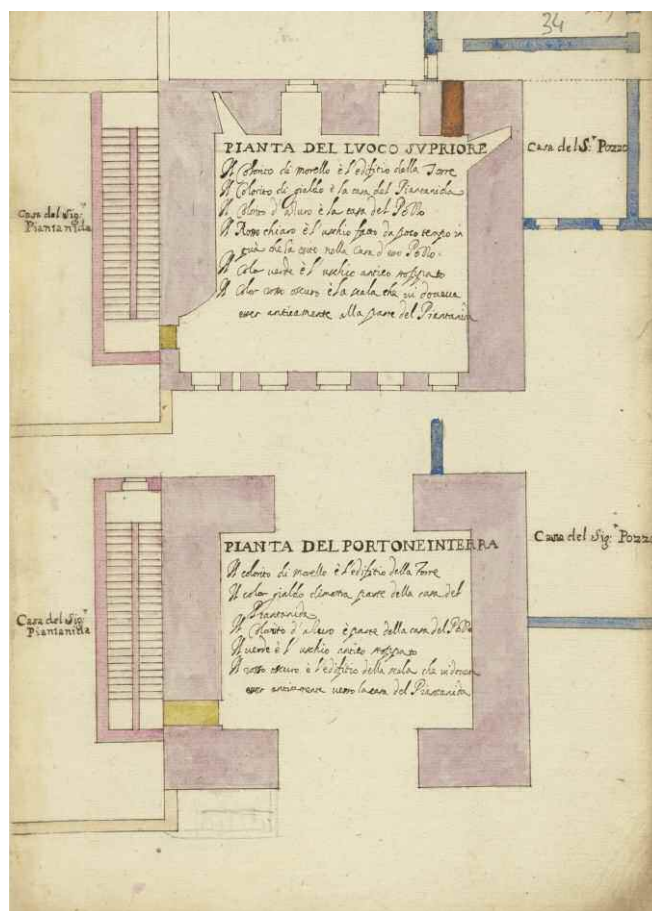 34
PIANTA DEL LVOCO SVPRIORE
Il Colorito di morello è l'edifitio della Torre
Il Colorito di gialdo è la casa del Piantanida
Il Colorito d'azuro è la casa del Pozzo
Il Rosso chiaro è l'uschio fatto da poco tempo in
quà che fà entrar nella Casa d'esso Pozzo.
Il Color verde è l'uschio antico stoppato
Il Color rosso oscuro è la scala che vi doueua
esser anticamente alla parte del Piantanida
Casa del Sig.r
Piantanida
Casa del S.r Pozzo
PIANTA DEL PORTONE IN TERRA
Il colorito di morello è l'edifitio della Torre
Il color gialdo dimostra parte della casa del
Piantanida
Il Colorito d'azuro è parte della casa del Pozzo
Il uerde è l'uschio antico stoppato
Il rosso oscuro è l'edifitio della scala che vi doueua
esser anticamente uerso la casa del Piantanida
Casa del Sig.r
Piantanida
Casa del Sig.r Pozzo